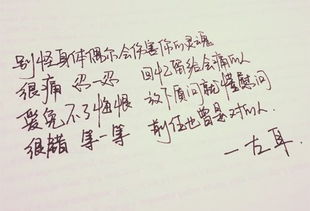 别怪身体偶尔会伤害你的灵魂
很痛 忍一忍 回忆留给会痛的人
爱免不了悔恨 放下质问就懂慰问
很错 等一等 前任也曾是对的人
—左耳.